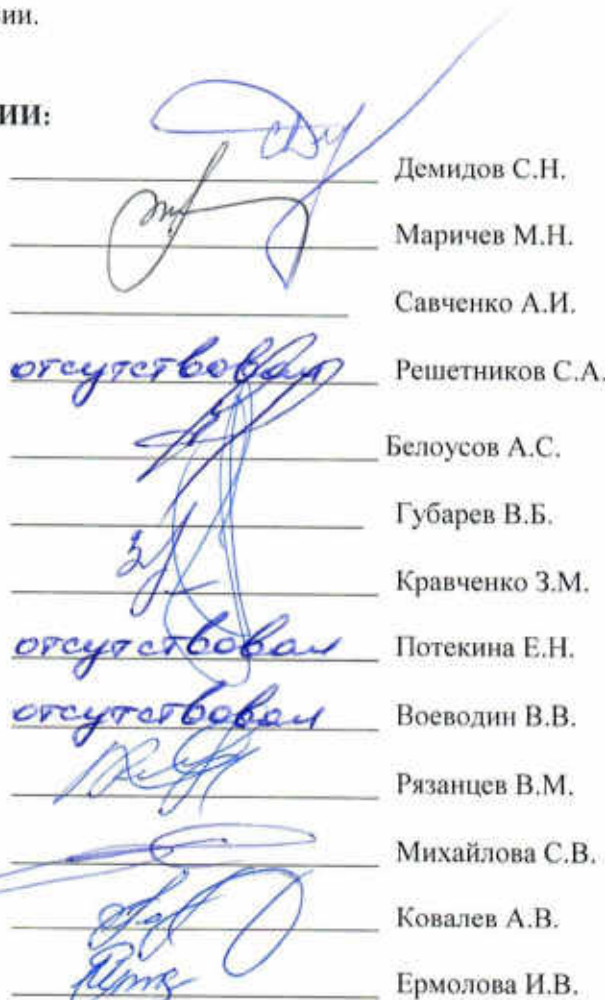 ии.
ИИ:
Демидов С.Н.
Маричев М.Н.
Савченко А.И.
отсутствовал Решетников С.А.
Белоусов А.С.
Губарев В.Б.
Кравченко З.М.
отсутствовал Потекина Е.Н.
отсутствовал Воеводин В.В.
Рязанцев В.М.
Михайлова С.В.
Ковалев А.В.
Ермолова И.В.